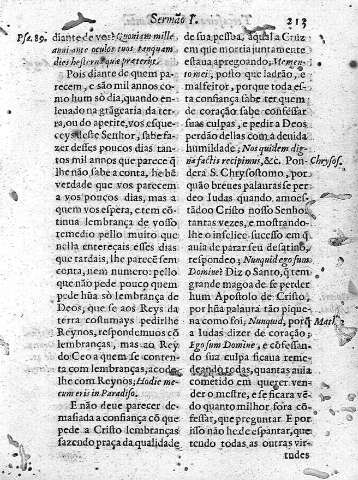 Sermão I. 213
Psa. 89.
diante de vos? Quoniam mille
anni ante oculos tuos tanquam
dies hesterna que præterijt.
Pois diante de quem pa-
recem, e são mil annos co-
mo hum só dia, quando en-
leuado na graça da ter-
ra, ou do apetite, vos esque-
ceys deste Senhor, sabe fa-
zer desses poucos dias tan-
tos mil annos que parece q̃
lhe não sabe a conta, he bẽ
verdade que vos parecem
a vos poucos dias, mas a
quem vos espera, e tem cõ-
tinua lembrança de vosso
remedio pello muito que
nella entereçais esses dias
que tardais, lhe parecẽ sem
conta, nem numero: pello
que não pede pouco quem
pede hũa só lembrança de
Deos, que se aos Reys da
terra costumays pedirlhe
Reynos, respondemuos cõ
lembranças, mas ao Rey
do Ceo a quem se conten-
ta com lembranças, acode-
lhe com Reynos; Hodie me-
cum eris in Paradiso.
E não deue parecer de-
masiada a confiança cõ que
pede a Christo lembranças
fazendo praça da qualidade
de sua pessoa, aquẽl a Cruz
em que morria juntamente
estaua apregoando; Memen-
to mei, posto que ladrão, e
malfeitor, porque toda es-
ta confiança sabe ter quem
de coração sabe confessar
suas culpas, e pedir a Deos
perdão dellas com a deuida
humildade; Nos quidem dig-
na factis recipimus, &c. Pon-
Chrysos.
dera S. Chrysostomo, por
quão breues palauras se per-
deo Iudas quando amoes-
tãdoo Christo nosso Senhor
tantas vezes, e mostrando-
lhe o infelice successo em q̃
auia de parar seu desatino,
respondeo; Nunquid ego sum
Domine? Diz o Santo, q̃ tem
grande magoa de se perder
hum Apostolo de Christo,
por hũa palaura tão pique-
na como foi; Nunquid, porq̃
Matth.
a Iudas dizer de coração;
Ego sum Domine, e cõfessan-
do sua culpa ficaua reme-
deando todas, quantas auia
cometido em querer ven-
der o mestre, e se ficara vẽ-
do quanto milhor fora cõ-
fessar, que preguntar. E por
isso não he de espantar, que
tendo todas as outras vir-
tudes